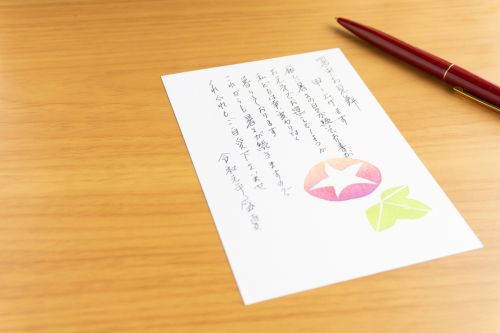 暑中お見舞
申し上げます
厳しい暑さの日が続いておりますが
お元気でお過ごしでしょうか
私どもは幸い変わりなく
暮らしております
これからも暑さが続きますので
くれぐれもご自愛下さいませ
令和元年 盛夏